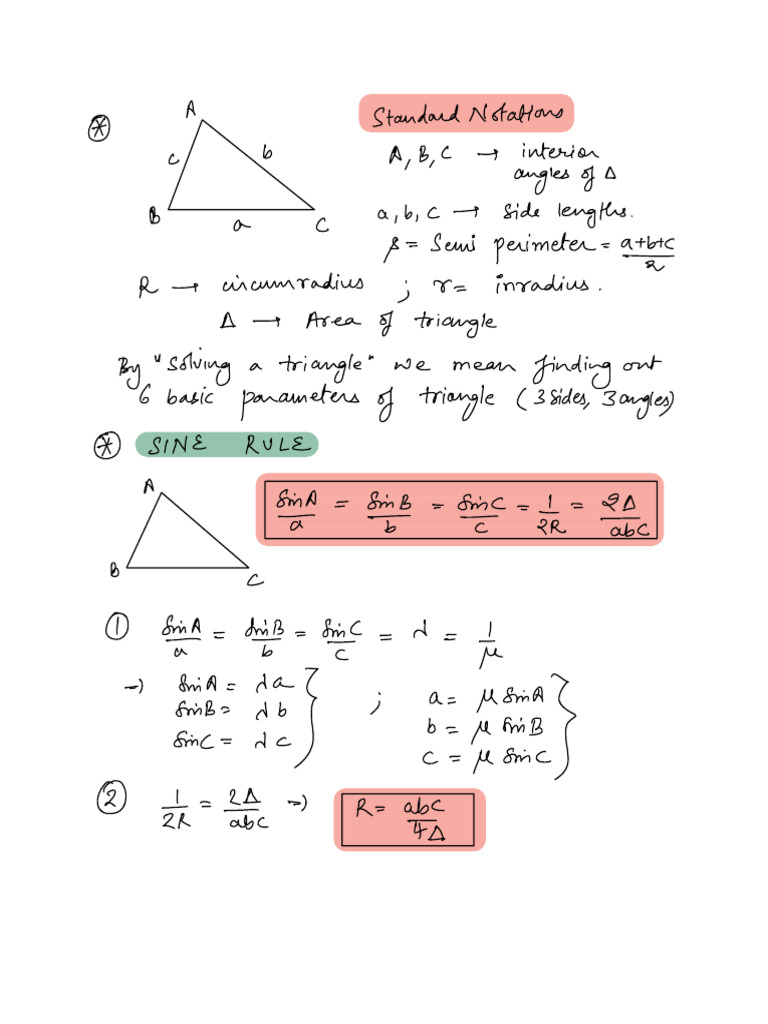 Standard Notations
A
c
b
B
a
C
A, B, C → interior
angles of Δ
a, b, c → side lengths.
s = Semi perimeter = (a+b+c)/2
R → circumradius ; r = inradius.
Δ → Area of triangle
By "solving a triangle" we mean finding out
6 basic parameters of triangle (3 sides, 3 angles)
SINE RULE
A
B
C
sinA/a = sinB/b = sinC/c = 1/2R = 2Δ/abc
① sinA/a = sinB/b = sinC/c = λ = 1/μ
→ sinA = λa ; a = μ sinA
sinB = λb b = μ sinB
sinC = λc c = μ sinC
② 1/2R = 2Δ/abc → R = abc/4Δ